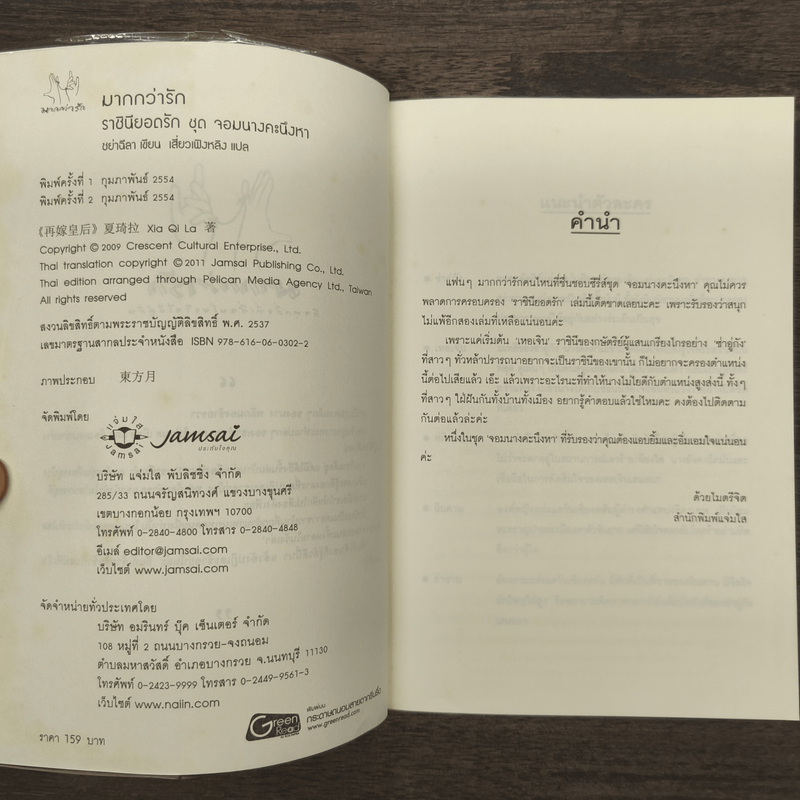 มากกว่ารัก
มากกว่ารัก
ราชินียอดรัก ชุด จอมนางคะนึงหา
ชย่าฉีลา เขียน เสี่ยวเฟิงหลิง แปล
พิมพ์ครั้งที่ 1 กุมภาพันธ์ 2554
พิมพ์ครั้งที่ 2 กุมภาพันธ์ 2554
《再嫁皇后》夏琦拉 Xia Qi La 著
Copyright © 2009 Crescent Cultural Enterprise., Ltd.
Thai translation copyright © 2011 Jamsai Publishing Co., Ltd.
Thai edition arranged through Pelican Media Agency Ltd., Taiwan
All rights reserved
สงวนลิขสิทธิ์ตามพระราชบัญญัติลิขสิทธิ์ พ.ศ. 2537
เลขมาตรฐานสากลประจำหนังสือ ISBN 978-616-06-0302-2
ภาพประกอบ 東方月
จัดพิมพ์โดย
แจ่มใส
JAMSAI
Jamsai
ประทับใจคุณ
บริษัท แจ่มใส พับลิชชิ่ง จำกัด
285/33 ถนนจรัญสนิทวงศ์ แขวงบางขุนศรี
เขตบางกอกน้อย กรุงเทพฯ 10700
โทรศัพท์ 0-2840-4800 โทรสาร 0-2840-4848
อีเมล์ editor@jamsai.com
เว็บไซต์ www.jamsai.com
จัดจำหน่ายทั่วประเทศโดย
บริษัท อมรินทร์ บุ๊ค เซ็นเตอร์ จำกัด
108 หมู่ที่ 2 ถนนบางกรวย-จงถนอม
ตำบลมหาสวัสดิ์ อำเภอบางกรวย จ.นนทบุรี 11130
โทรศัพท์ 0-2423-9999 โทรสาร 0-2449-9561-3
เว็บไซต์ www.naiin.com
Green Read
พิมพ์บน
กระดาษถนอมสายตากรีนรี้ด
www.greenread.com
ราคา 159 บาท
คำนำ
แฟนๆ มากกว่ารักคนไหนที่ชื่นชอบซีรี่ส์ชุด ‘จอมนางคะนึงหา’ คุณไม่ควร
พลาดการครอบครอง ‘ราชินียอดรัก’ เล่มนี้เด็ดขาดเลยนะคะ เพราะรับรองว่าสนุก
ไม่แพ้อีกสองเล่มที่เหลือแน่นอนค่ะ
เพราะแค่เริ่มต้น ‘เหอเจิน’ ราชินีของกษัตริย์ผู้แสนเกรียงไกรอย่าง ‘ซ่าอู่กัง’
ที่สาวๆ ทั่วหล้าปรารถนาอยากจะเป็นราชินีของเขานั้น ก็ไม่อยากจะครองตำแหน่ง
นี้ต่อไปเสียแล้ว เอ๊ะ แล้วเพราะอะไรนะที่ทำให้นางไม่ไยดีกับตำแหน่งสูงส่งนี้ ทั้งๆ
ที่สาวๆ ใฝ่ฝันกันทั้งบ้านทั้งเมือง อยากรู้คำตอบแล้วใช่ไหมคะ คงต้องไปติดตาม
กันต่อแล้วล่ะค่ะ
หนึ่งในชุด ‘จอมนางคะนึงหา’ ที่รับรองว่าคุณต้องแอบยิ้มและอิ่มเอมใจแน่นอน
ค่ะ
ด้วยไมตรีจิต
สำนักพิมพ์แจ่มใส